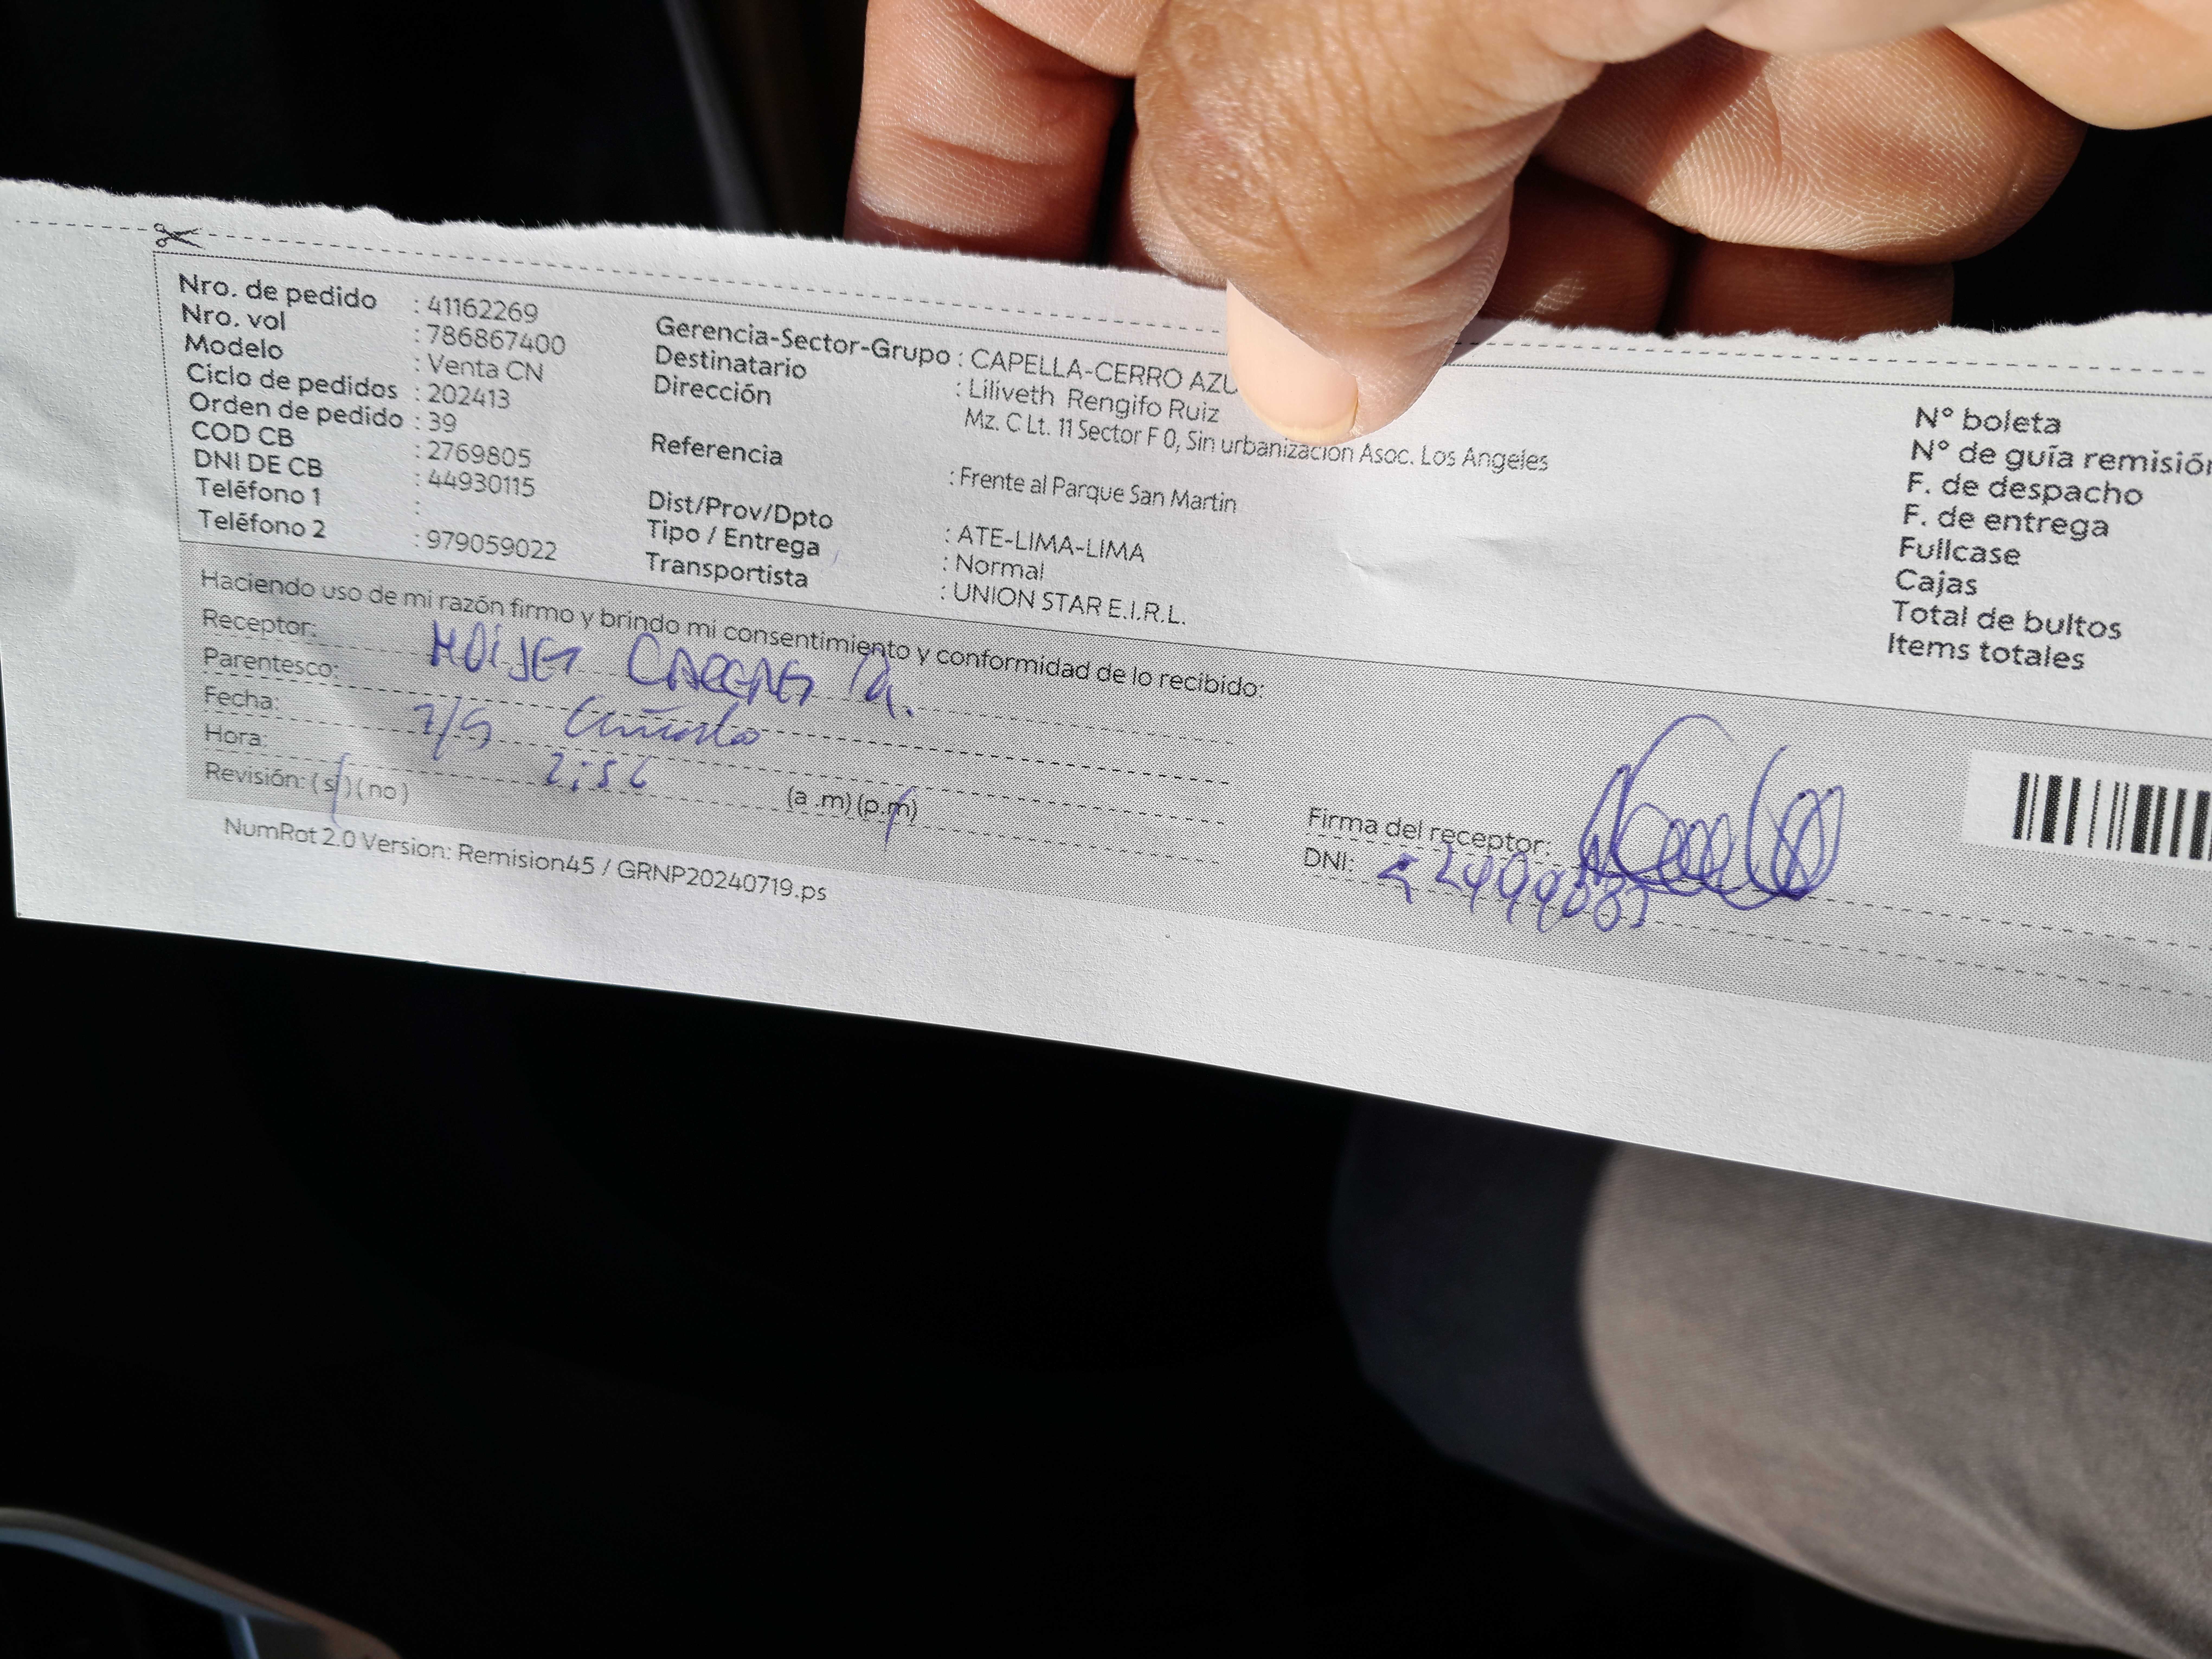 Nro. de pedido : 41162269
Nro. vol : 786867400
Modelo : Venta CN
Ciclo de pedidos : 202413
Orden de pedido : 39
COD CB : 2769805
DNI DE CB : 44930115
Teléfono 1 :
Teléfono 2 : 979059022
Gerencia-Sector-Grupo : CAPELLA-CERRO AZU
Destinatario : Liliveth Rengifo Ruiz
Dirección Mz. C Lt. 11 Sector F 0, Sin urbanización Asoc. Los Angeles
Referencia : Frente al Parque San Martin
Dist/Prov/Dpto : ATE-LIMA-LIMA
Tipo / Entrega : Normal
Transportista : UNION STAR E.I.R.L.
N° boleta
N° de guía remisión
F. de despacho
F. de entrega
Fullcase
Cajas
Total de bultos
Items totales
Haciendo uso de mi razón firmo y brindo mi consentimiento y conformidad de lo recibido:
Receptor: MOISES
Parentesco:
Fecha: 7/9
Hora: 2:56 (a .m) (p.m)
Revisión: (si) (no)
Firma del receptor:
DNI:
NumRot 2.0 Version: Remision45 / GRNP20240719.ps